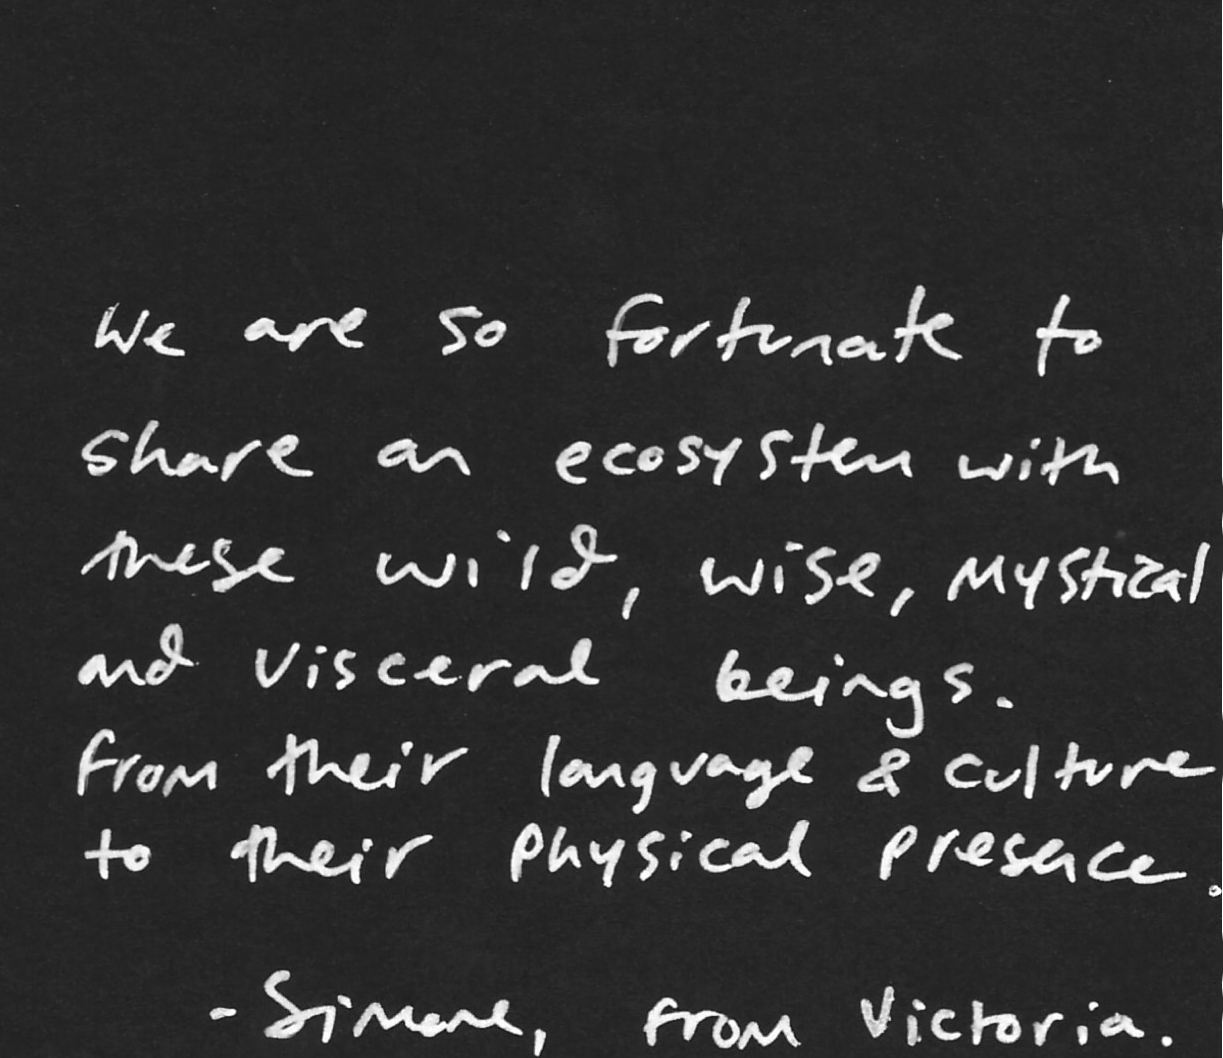 We are so fortunate to
share an ecosystem with
these wild, wise, mystical
and visceral beings.
From their language & culture
to their physical presence.
- Simone, from Victoria.